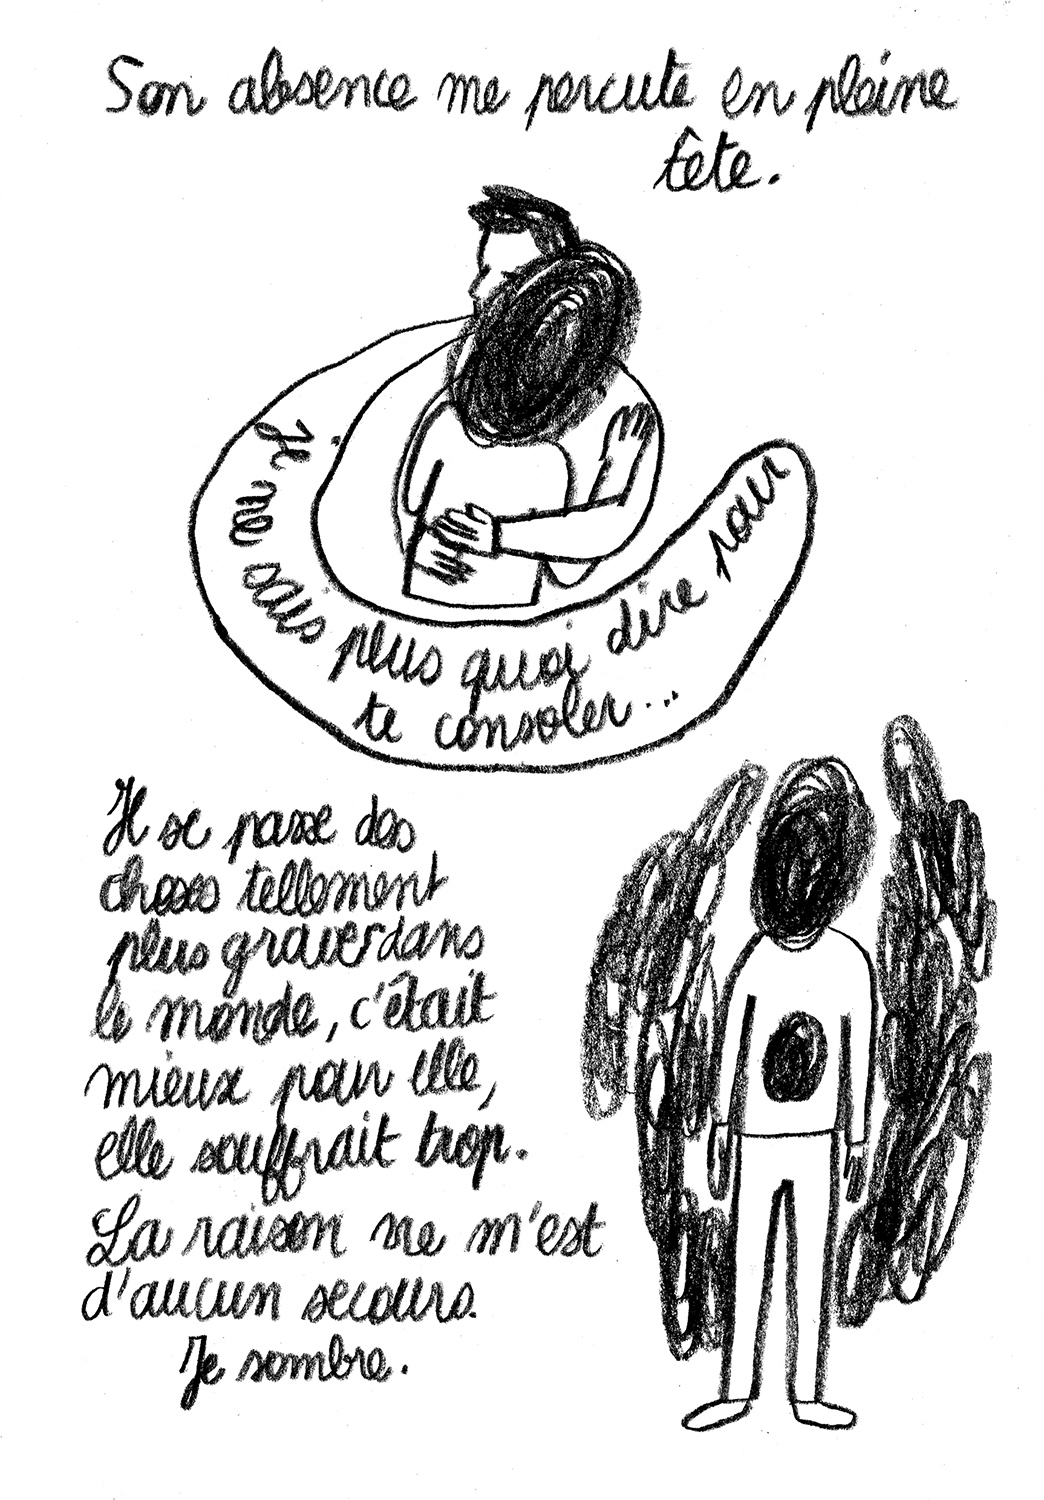 Son absence me percute en pleine
tête.
Je ne sais plus quoi dire pour
te consoler...
Il se passe des
choses tellement
plus graves dans
le monde, c'était
mieux pour elle,
elle souffrait trop.
La raison ne m'est
d'aucun secours.
Je sombre.